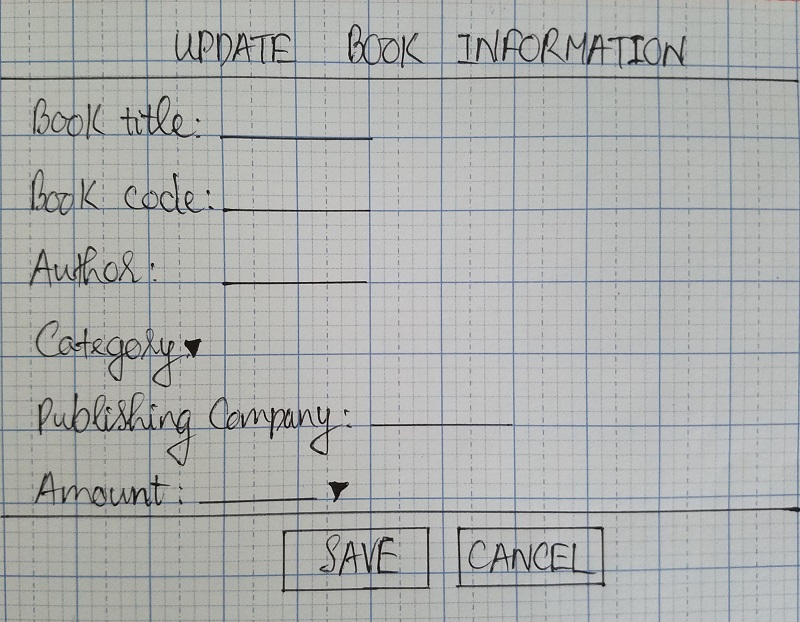 UPDATE BOOK INFORMATION
Book title:
Book code:
Author:
Category
Publishing Company:
Amount:
SAVE CANCEL